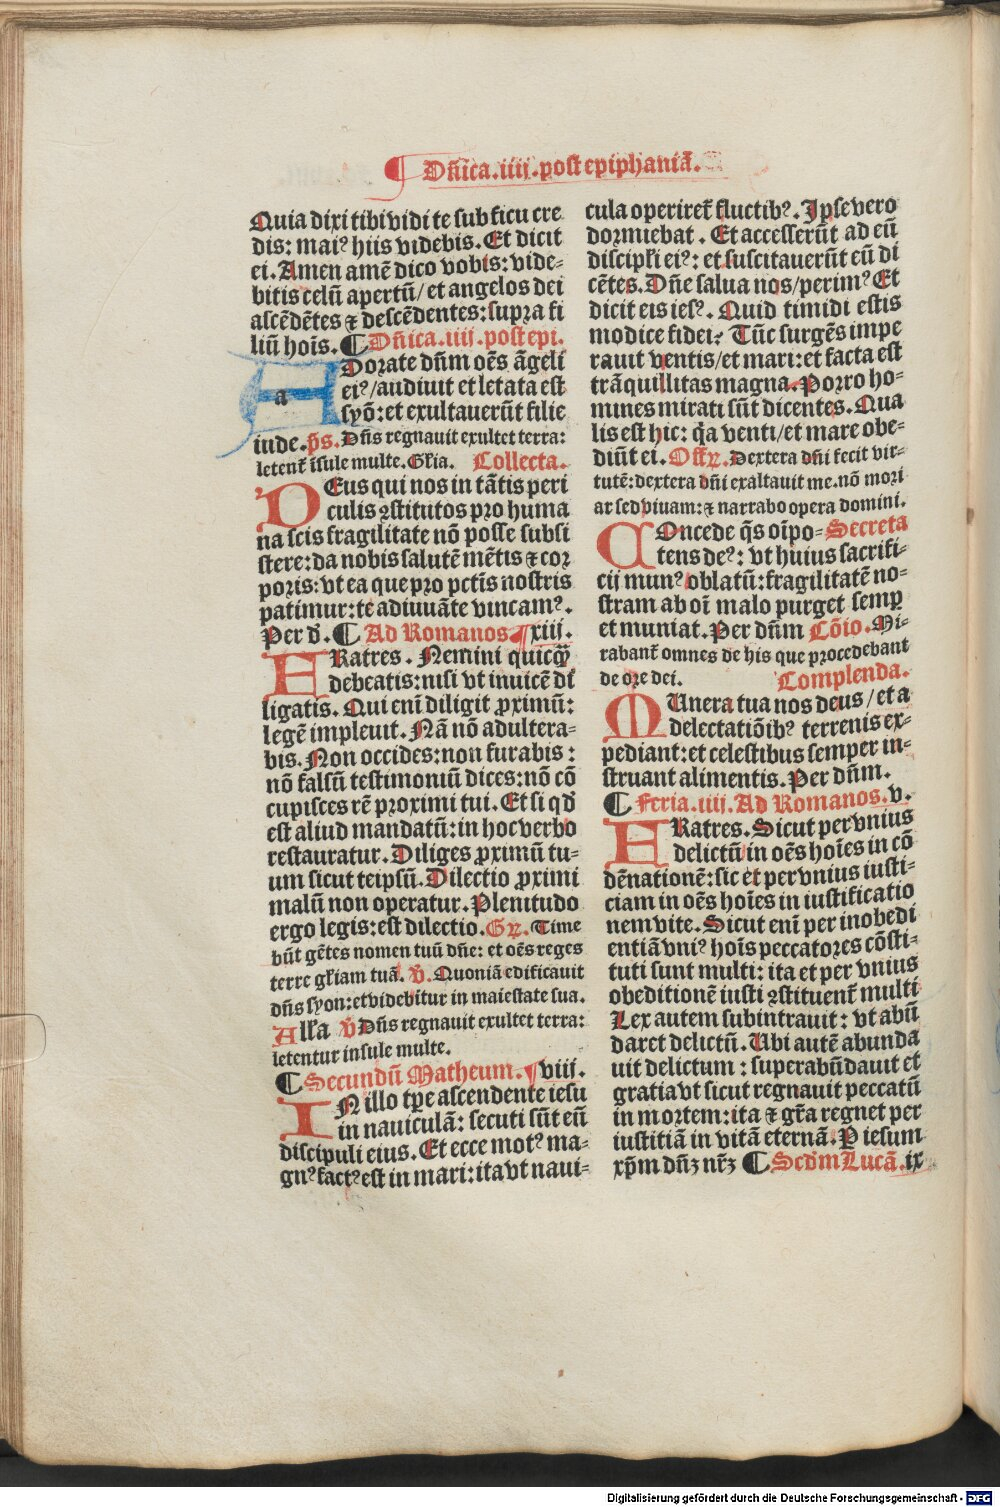 ¶ Dn̄ica.iiij.post epiphaniā.
Quia dixi tibi vidi te sub ficu cre
dis: maiꝰ hiis videbis. Et dicit
ei. Amen amē dico vobis: vide-
bitis celū apertū/et angelos dei
ascēdētes ⁊ descēdentes: supra fi
liū hoīs. ¶ Dn̄ica.iiij.post epi.
Adorate dn̄m oēs āgeli
eiꝰ/audiuit et letata est
syō: et exultauerūt filie
iude. p̄s. Dn̄s regnauit exultet terra:
letent᷑ īsule multe. Gl̄ia. Collecta.
DEus qui nos in tātis peri
culis ꝯstitutos pro huma
na scis fragilitate nō posse subsi
stere: da nobis salutē mētis ⁊ cor
poris: vt ea que pro pctīs nostris
patimur: te adiuuāte vincamꝰ.
Per d̄. ¶ Ad Romanos ¶ xiij.
FRatres. Nemini quicq̄
debeatis: nisi vt inuicē dī
ligatis. Qui enī diligit ꝓximū:
legē impleuit. Nā nō adultera-
bis. Non occides: non furabis:
nō falsū testimoniū dices: nō cō
cupisces rē proximi tui. Et si qd̄
est aliud mandatū: in hoc verbo
restauratur. Diliges ꝓximū tu-
um sicut teipsū. Dilectio ꝓximi
malū non operatur. Plenitudo
ergo legis: est dilectio. Gr̄. Time
būt gētes nomen tuū dn̄e: et oēs reges
terre gl̄iam tuā. V̄. Quoniā edificauit
dn̄s syon: et videbitur in maiestate sua.
All̄a V̄ Dn̄s regnauit exultet terra:
letentur insule multe.
¶ Secundū Matheum. ¶ viij.
IN illo tp̄e ascendente iesu
in nauiculā: secuti sūt eū
discipuli eius. Et ecce motꝰ ma-
gnꝰ factꝰ est in mari: ita vt naui-
cula operiret᷑ fluctibꝰ. Ipse vero
dormiebat. Et accesserūt ad eū
discipl̄i eiꝰ: et suscitauerūt eū di
cētes. Dn̄e salua nos/perimꝰ Et
dicit eis iesꝰ. Quid timidi estis
modice fidei? Tūc surgēs impe
rauit ventis/et mari: et facta est
trāquillitas magna. Porro ho-
mines mirati sūt dicentes. Qua
lis est hic: q̄a venti/et mare obe-
diūt ei. Off̄r. Dextera dn̄i fecit vir-
tutē: dextera dn̄i exaltauit me. nō mori
ar sed viuam: ⁊ narrabo opera domini.
COncede q̄s oīpo- Secreta
tens deꝰ: vt huius sacrifi-
cij munꝰ oblatū: fragilitatē no-
stram ab oī malo purget semꝑ
et muniat. Per dn̄m Cōio. Mi-
rabant᷑ omnes de his que procedebant
de ore dei. Complenda.
MUnera tua nos deus/et a
delectatiōibꝰ terrenis ex-
pediant: et celestibus semper in-
struant alimentis. Per dn̄m.
¶ Feria.iiij. Ad Romanos. v.
FRatres. Sicut per vnius
delictū in oēs hoīes in cō
dēnationē: sic et per vnius iusti-
ciam in oēs hoīes in iustificatio
nem vite. Sicut enī per inobedi
entiā vniꝰ hoīs peccatores cōsti-
tuti sunt multi: ita et per vnius
obeditionē iusti ꝯstituent᷑ multi
Lex autem subintrauit: vt abū
daret delictū. Ubi autē abunda
uit delictum: superabūdauit et
gratia vt sicut regnauit peccatū
in mortem: ita ⁊ gr̄a regnet per
iustitiā in vitā eternā. P iesum
xp̄m dn̄ꝫ nr̄ꝫ ¶ Scd̄m Lucā. ix
Digitalisierung gefördert durch die Deutsche Forschungsgemeinschaft - DFG